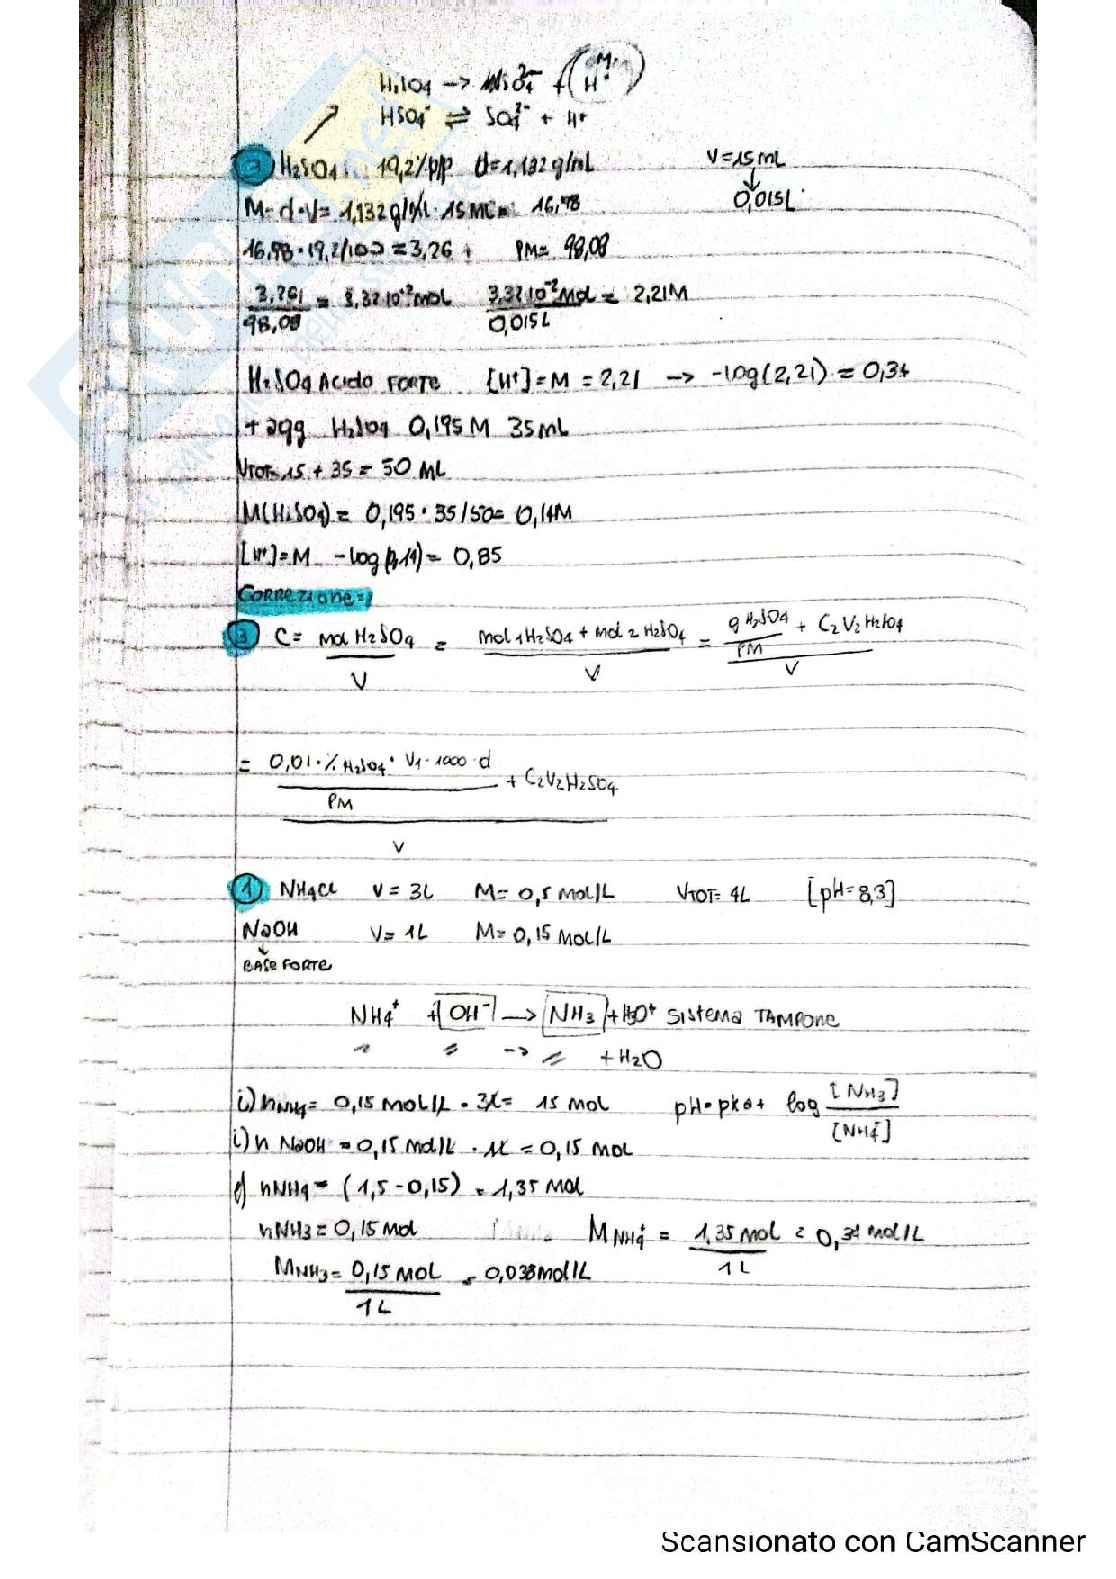 H₂SO₄ → HSO₄⁻ + H⁺
HSO₄⁻ ⇌ SO₄²⁻ + H⁺
H₂SO₄ 19,2% p/p d=1,132 g/mL V=15 mL
0,015L
M= d·V= 1,132 g/mL · 15 mL = 16,98
16,98 · 19,2/100 = 3,26 PM= 98,08
3,261 / 98,08 = 3,32 10⁻² mol 3,32 10⁻² mol / 0,015L = 2,21M
H₂SO₄ ACIDO FORTE [H⁺] = M = 2,21 → -log(2,21) = 0,34
+ agg H₂SO₄ 0,195 M 35 mL
VTOT= 15 + 35 = 50 mL
M(H₂SO₄) = 0,195 · 35/50= 0,14M
[H⁺]=M -log(0,14) = 0,85
CORREZIONE=
3 C= mol H₂SO₄ / V = mol 1 H₂SO₄ + mol 2 H₂SO₄ / V = g H₂SO₄ / PM + C₂V₂ H₂SO₄ / V
= 0,01 · % H₂SO₄ · V₁ · 1000 · d / PM + C₂V₂ H₂SO₄ / V
1 NH₄Cl V = 3L M= 0,5 mol/L VTOT= 4L [pH=8,3]
NaOH V= 1L M= 0,15 mol/L
BASE FORTE
NH₄⁺ + OH⁻ → NH₃ + H₃O⁺ sistema TAMPONE
" = → = + H₂O
i) nNH₄= 0,15 mol/L · 3L= 15 mol pH= pka + log [NH₃] / [NH₄⁺]
i) n NaOH = 0,15 mol/L · 1L = 0,15 mol
f) nNH₄ = (1,5 - 0,15) = 1,35 mol
nNH₃ = 0,15 mol M NH₄⁺ = 1,35 mol / 1L = 0,34 mol/L
M NH₃ = 0,15 mol / 1L = 0,038 mol/L
Scansionato con CamScanner